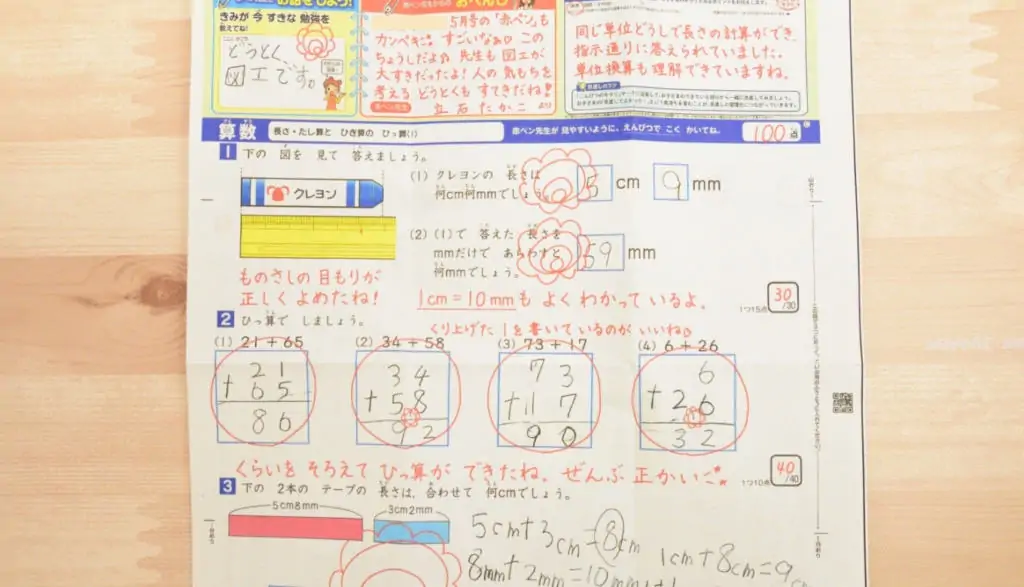 お話をしよう!
きみが 今 すきな 勉強を
教えてね!
どうとく、
図工です。
5月号の「赤ペン」も
カンペキ すごいなぁ このちょうしだよ
先生も 図工が
大すきだったよ! 人の 気もちを
考える どうとくも すてきだね!
赤ペン先生
立石 たかこ より
同じ単位どうしで長さの計算ができ、
指示通りに答えられていました。
単位換算も理解できていますね。
算数
長さ・たし算と ひき算の ひっ算(1)
赤ペン先生が 見やすいように、えんぴつで こく かいてね。
100点
1 下の 図を 見て 答えましょう。
クレヨン
(1) クレヨンの 長さは
何cm何mmでしょう。
5 cm 9 mm
(2) (1)で 答えた 長さを
mmだけで あらわすと
何mmでしょう。
59 mm
ものさしの 目もりが
正しく よめたね!
1cm=10mmも よく わかって いるよ。
1つ15点
30/30
2 ひっ算で しましょう。
くり上げた 1を書いているのが いいね。
(1) 21+65 (2) 34+58 (3) 73+17 (4) 6+26
21 34 73 6
+65 +58 +17 +26
86 92 90 32
くらいを そろえて ひっ算が できたね。ぜんぶ 正かい
1つ10点
40/40
3 下の 2本の テープの 長さは、合わせて 何cmでしょう。
5cm8mm 3cm2mm
5cm+3cm=8cm
8mm+2mm=10mm
1cm+8cm=9cm